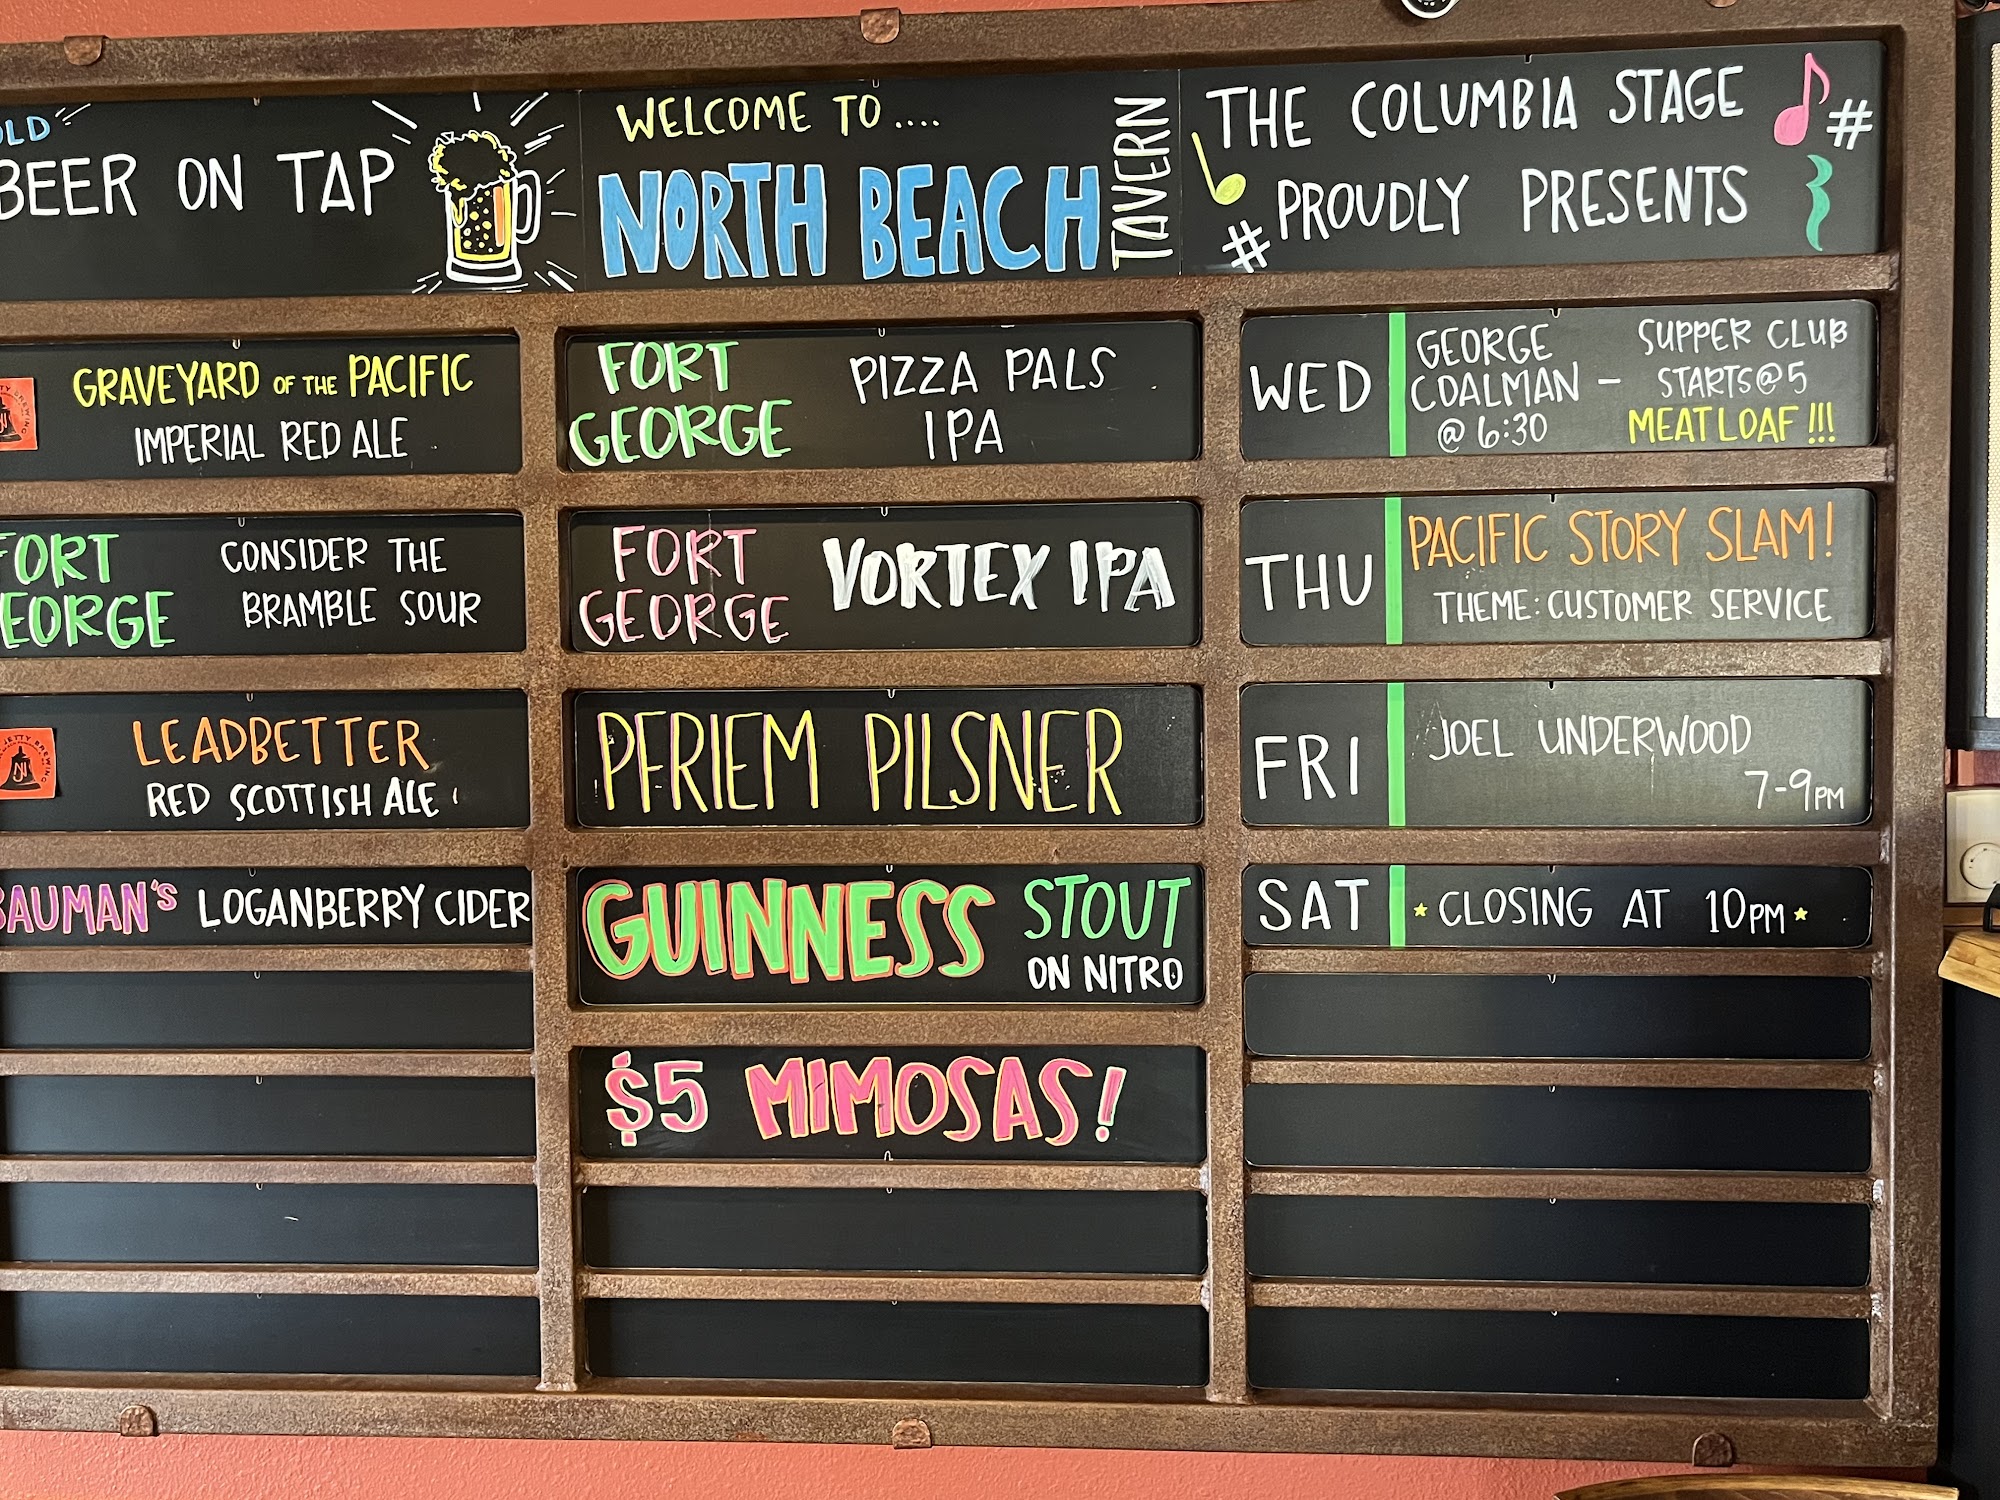 BEER ON TAP
GRAVEYARD OF THE PACIFIC
IMPERIAL RED ALE
FORT
GEORGE
CONSIDER THE
BRAMBLE SOUR
LEADBETTER
RED SCOTTISH ALE
BAUMAN'S LOGANBERRY CIDER
WELCOME TO ....
NORTH BEACH
TAVERN
FORT
GEORGE
PIZZA PALS
IPA
FORT
GEORGE
VORTEX IPA
PFRIEM PILSNER
GUINNESS STOUT
ON NITRO
$5 MIMOSAS!
THE COLUMBIA STAGE
PROUDLY PRESENTS
WED
GEORGE
COALMAN –
@ 6:30
SUPPER CLUB
STARTS@5
MEATLOAF !!!
THU
PACIFIC STORY SLAM!
THEME: CUSTOMER SERVICE
FRI
JOEL UNDERWOOD
7-9PM
SAT
CLOSING AT 10PM